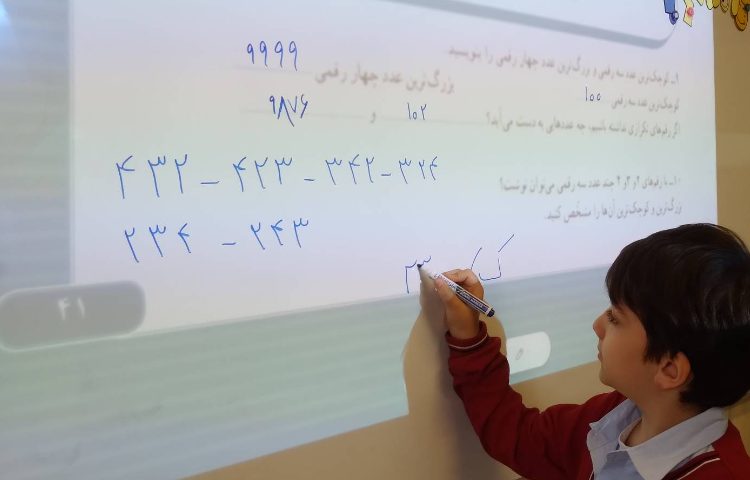 ۱ـ کوچک‌ترین عدد سه رقمی و بزرگ‌ترین عدد چهار رقمی را بنویسید.
کوچک‌ترین عدد سه رقمی ۱۰۰ بزرگ‌ترین عدد چهار رقمی ۹۹۹۹
اگر رقم‌های تکراری نداشته باشیم، چه عددهایی به دست می‌آید؟ ۱۰۲ و ۹۸۷۶
۱۰ـ با رقم‌های ۲ و ۳ و ۴ چند عدد سه رقمی می‌توان نوشت؟
بزرگ‌ترین و کوچک‌ترین آن‌ها را مشخص کنید.
۴۳۲ – ۴۲۳ – ۳۴۲ – ۳۲۴
۲۳۴ – ۲۴۳
ک ۲۳
۴۱